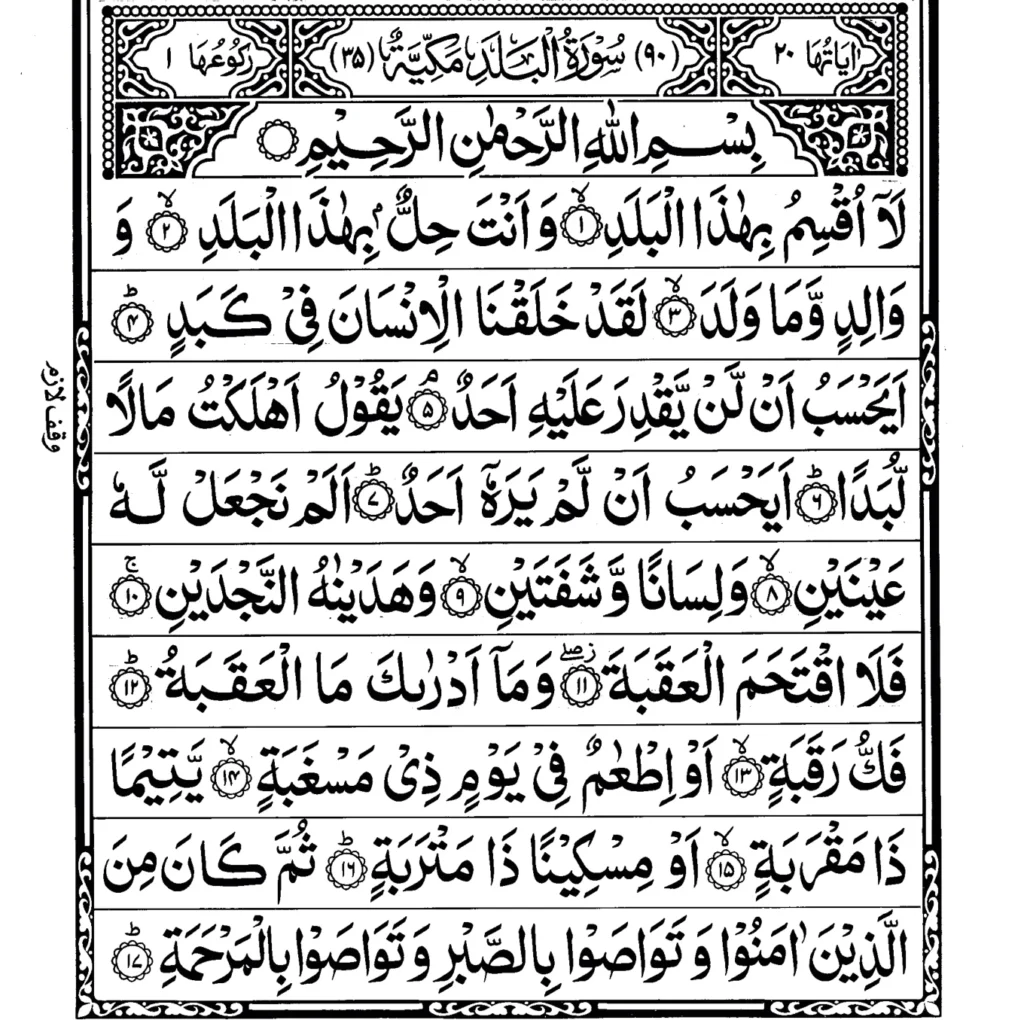 اٰيَاتُهَا ٢٠ (٩٠) سُوْرَةُ الْبَلَدِ مَكِّيَّةٌ (٣٥) رُكُوْعُهَا ١
بِسْمِ اللهِ الرَّحْمٰنِ الرَّحِيْمِ
لَآ اُقْسِمُ بِهٰذَا الْبَلَدِ ۙ‏﴿۱﴾ وَ اَنْتَ حِلٌّۢ بِهٰذَا الْبَلَدِ ۙ‏﴿۲﴾ وَ
وَالِدٍ وَّمَا وَلَدَ ۙ‏﴿۳﴾ لَقَدْ خَلَقْنَا الْاِنْسَانَ فِىْ كَبَدٍ ؕ‏﴿۴﴾
اَيَحْسَبُ اَنْ لَّنْ يَّقْدِرَ عَلَيْهِ اَحَدٌ ۘ‏﴿۵﴾ يَقُوْلُ اَهْلَكْتُ مَالًا
وقف لازم
لُّبَدًا ؕ‏﴿۶﴾ اَيَحْسَبُ اَنْ لَّمْ يَرَهٗۤ اَحَدٌ ؕ‏﴿۷﴾ اَلَمْ نَجْعَلْ لَّهٗ
عَيْنَيْنِ ۙ‏﴿۸﴾ وَلِسَانًا وَّ شَفَتَيْنِ ۙ‏﴿۹﴾ وَهَدَيْنٰهُ النَّجْدَيْنِ ۚ‏﴿۱۰﴾
فَلَا اقْتَحَمَ الْعَقَبَةَ ۖ‏﴿۱۱﴾ وَمَاۤ اَدْرٰٮكَ مَا الْعَقَبَةُ ؕ‏﴿۱۲﴾
فَكُّ رَقَبَةٍ ۙ‏﴿۱۳﴾ اَوْ اِطْعٰمٌ فِىْ يَوْمٍ ذِىْ مَسْغَبَةٍ ۙ‏﴿۱۴﴾ يَّتِيْمًا
ذَا مَقْرَبَةٍ ۙ‏﴿۱۵﴾ اَوْ مِسْكِيْنًا ذَا مَتْرَبَةٍ ؕ‏﴿۱۶﴾ ثُمَّ كَانَ مِنَ
الَّذِيْنَ اٰمَنُوْا وَ تَوَاصَوْا بِالصَّبْرِ وَ تَوَاصَوْا بِالْمَرْحَمَةِ ؕ‏﴿۱۷﴾